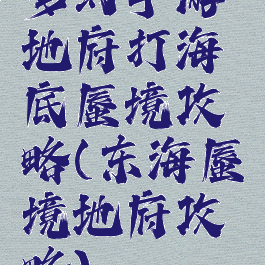 梦幻手游
地府打海
底蜃境攻
略(东海蜃
境地府攻
略)